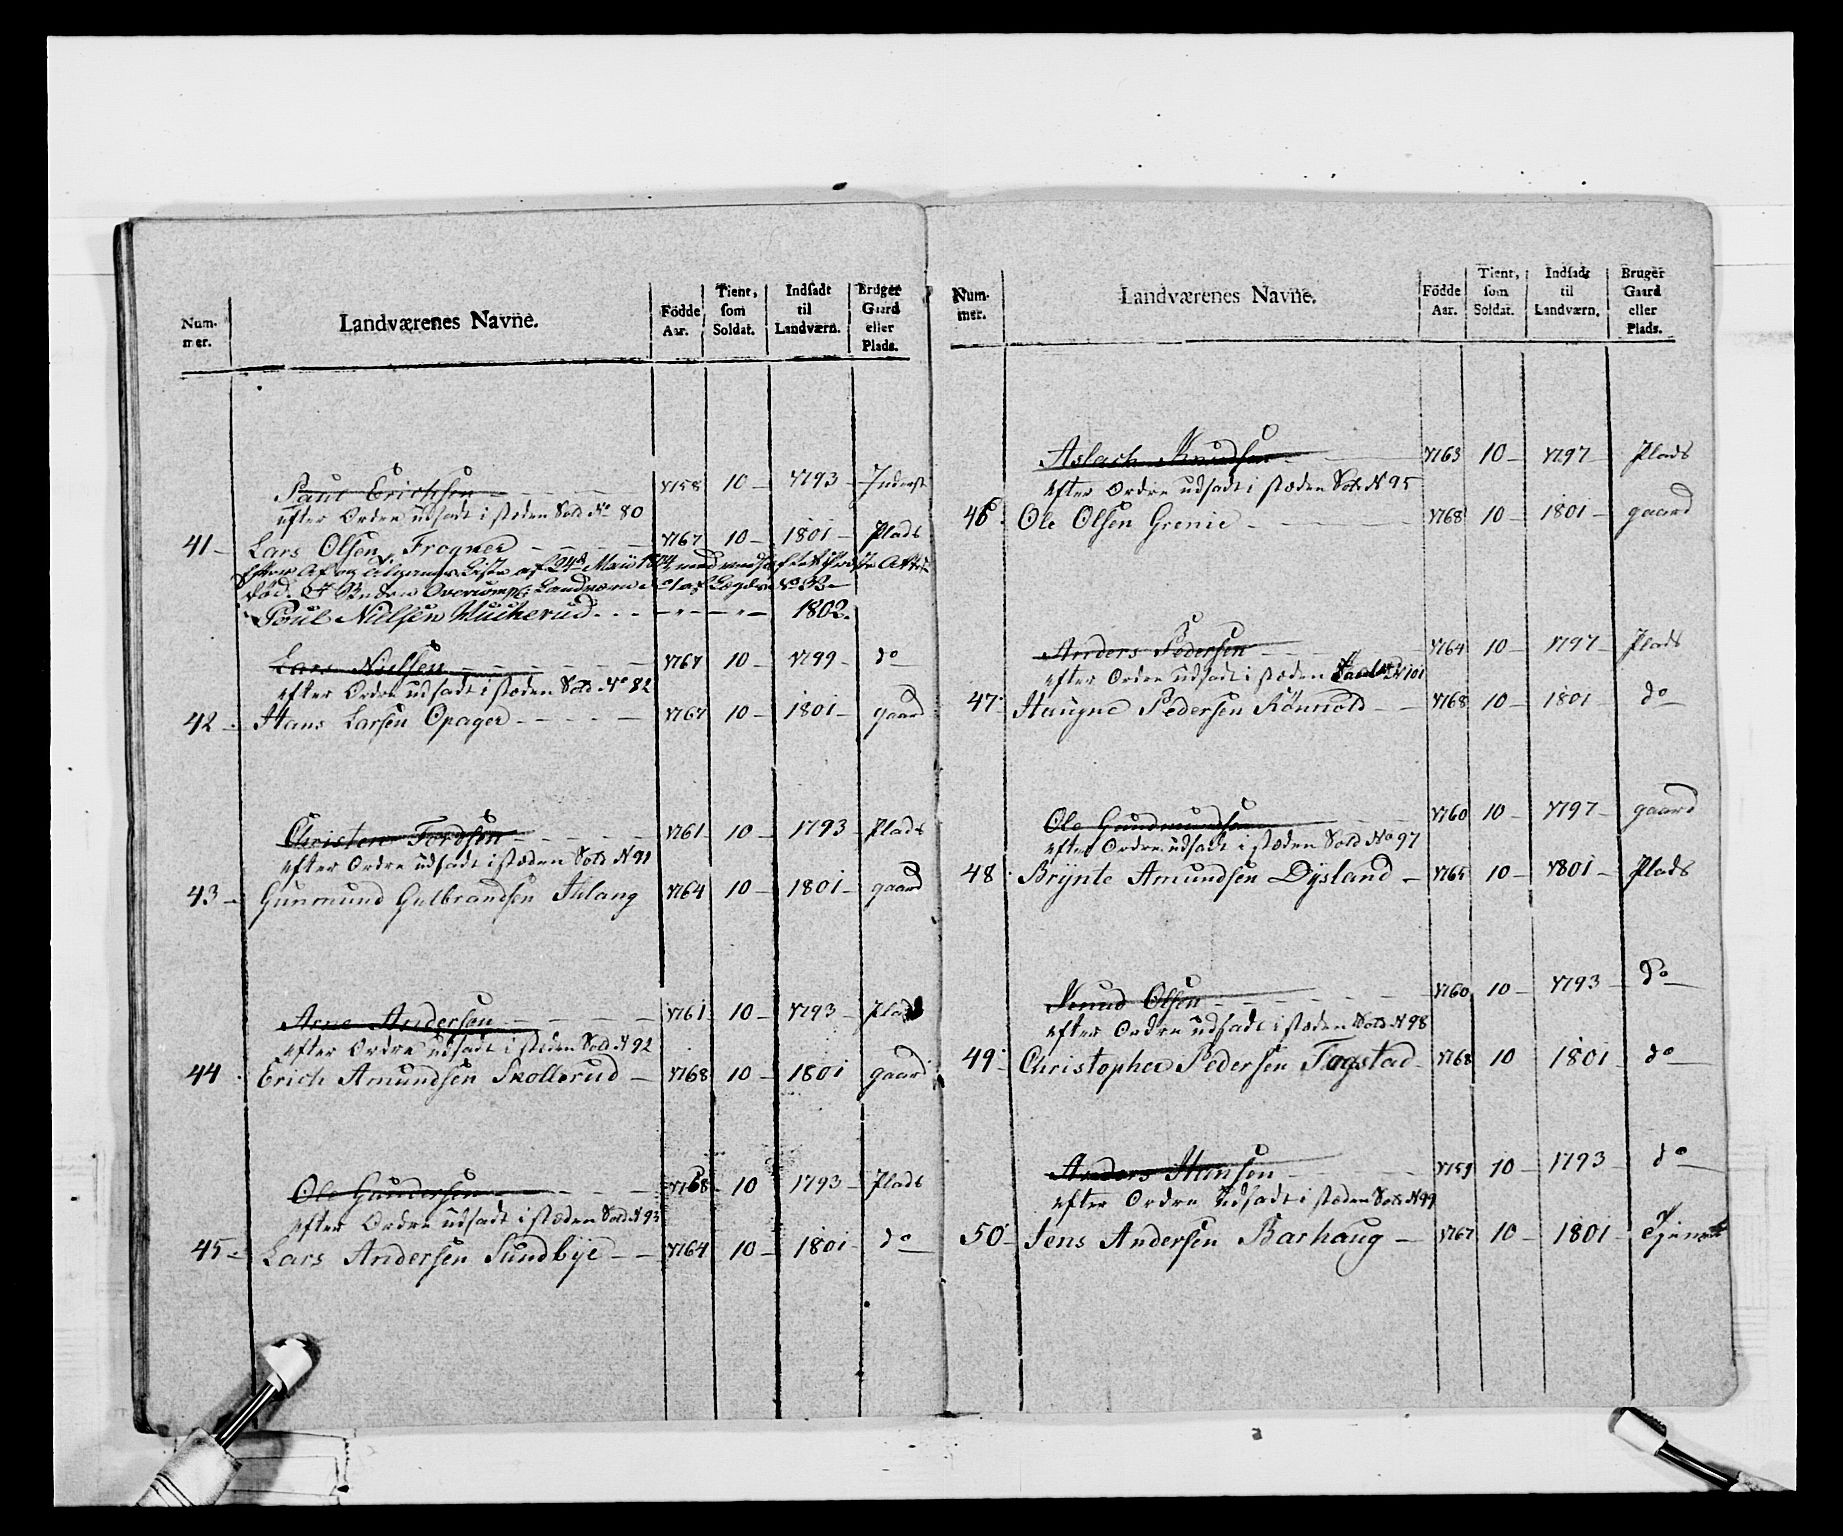 Num-
mer.
Landværenes Navne.
Födde
Aar.
Tient,
som
Soldat.
Indsadt
til
Landværn.
Bruger
Gaard
eller
Plads.
Paul Erichsen 1758 10 1793 Inderst
efter Ordre udsadt i stæden Sold No 80
41 Lars Olsen Frogner 1767 10 1801 Plads
død.
Poul Nielsen Muckerud 1802.
Lars Nielsen 1767 10 1799 do
efter Ordre udsadt i stæden Sold No 82
42 Hans Larsen Opager 1767 10 1801 gaard
Christen Tordsen 1761 10 1793 Plads
efter Ordre udsadt i stæden Sold N 91
43 Gunmund Gulbrandsen Ihlang 1764 10 1801 gaard
Arne Andersen 1761 10 1793 Plads
efter Ordre udsadt i stæden Sold N 92
44 Erich Amundsen Skollerud 1768 10 1801 gaard
Ole Gundersen 1768 10 1793 Plads
efter Ordre udsadt i stæden Sold N 93
45 Lars Andersen Sundbÿe 1764 10 1801 do
Num-
mer.
Landværenes Navne.
Födde
Aar.
Tient,
som
Soldat.
Indsadt
til
Landværn.
Bruger
Gaard
eller
Plads.
Aslach Knudsen 1763 10 1797 Plads
efter Ordre udsadt i stæden Sold N 95
46 Ole Olsen Grenie 1768 10 1801 gaard
Anders Pedersen 1764 10 1797 Plads
efter Ordre udsadt i stæden N 101
47 Haugne Pedersen Rönnold 1768 10 1801 do
Ole Gudmundsen 1760 10 1797 gaard
efter Ordre udsadt i stæden Sold No 97
48 Brÿnte Amundsen Dÿsland 1765 10 1801 Plads
Knud Olsen 1760 10 1793 do
efter Ordre udsadt i stæden Sold N 98
49 Christopher Pedersen Fogstad 1768 10 1801 do
Anders Hansen 1759 10 1793 do
efter Ordre udsadt i stæden Sold N 99
50 Jens Andersen Barhaug 1767 10 1801